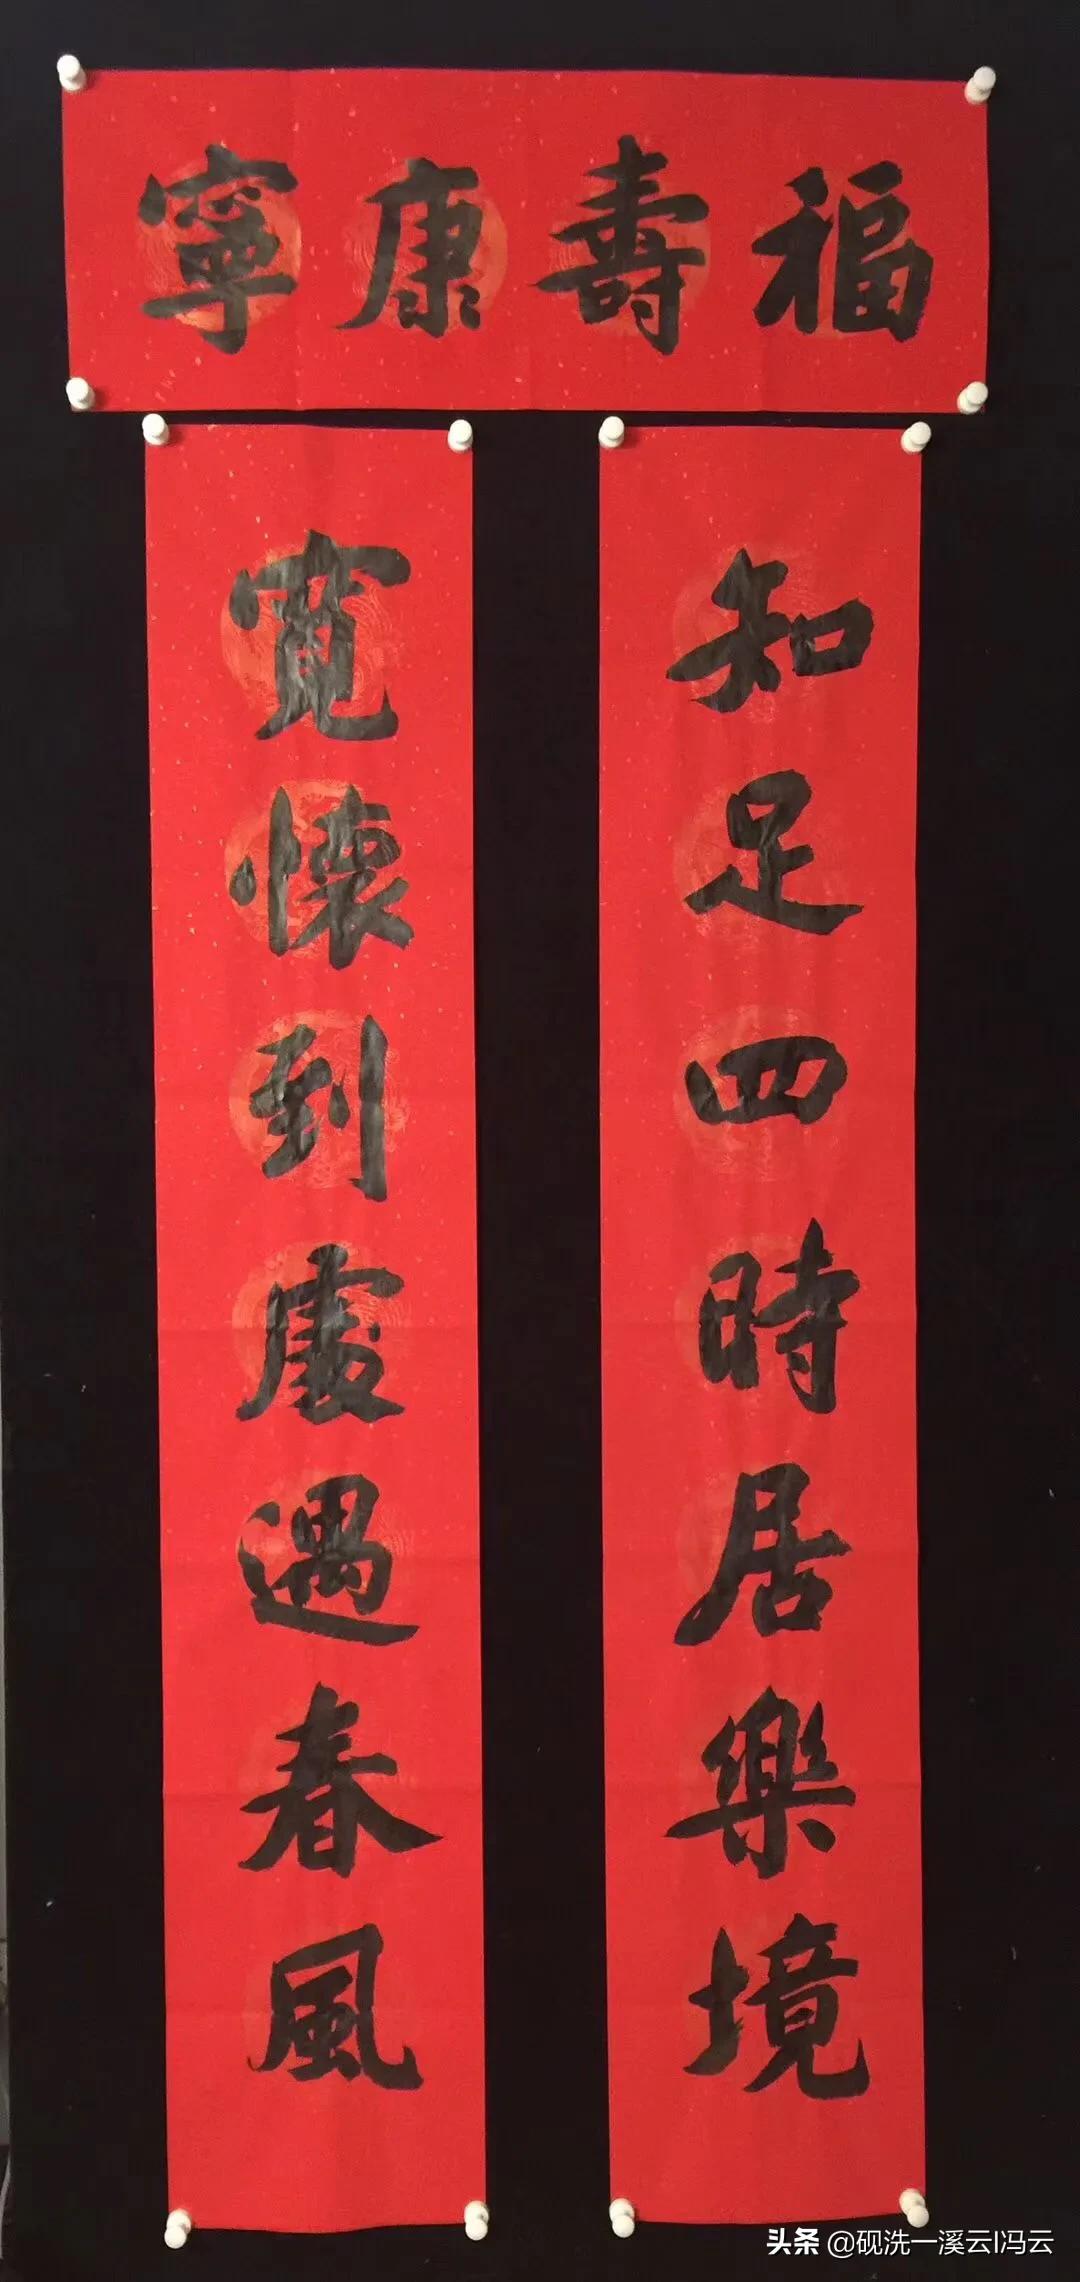 福壽康寧
知足四時居樂境
寬懷到處遇春風
头条 @砚洗一溪云I冯云